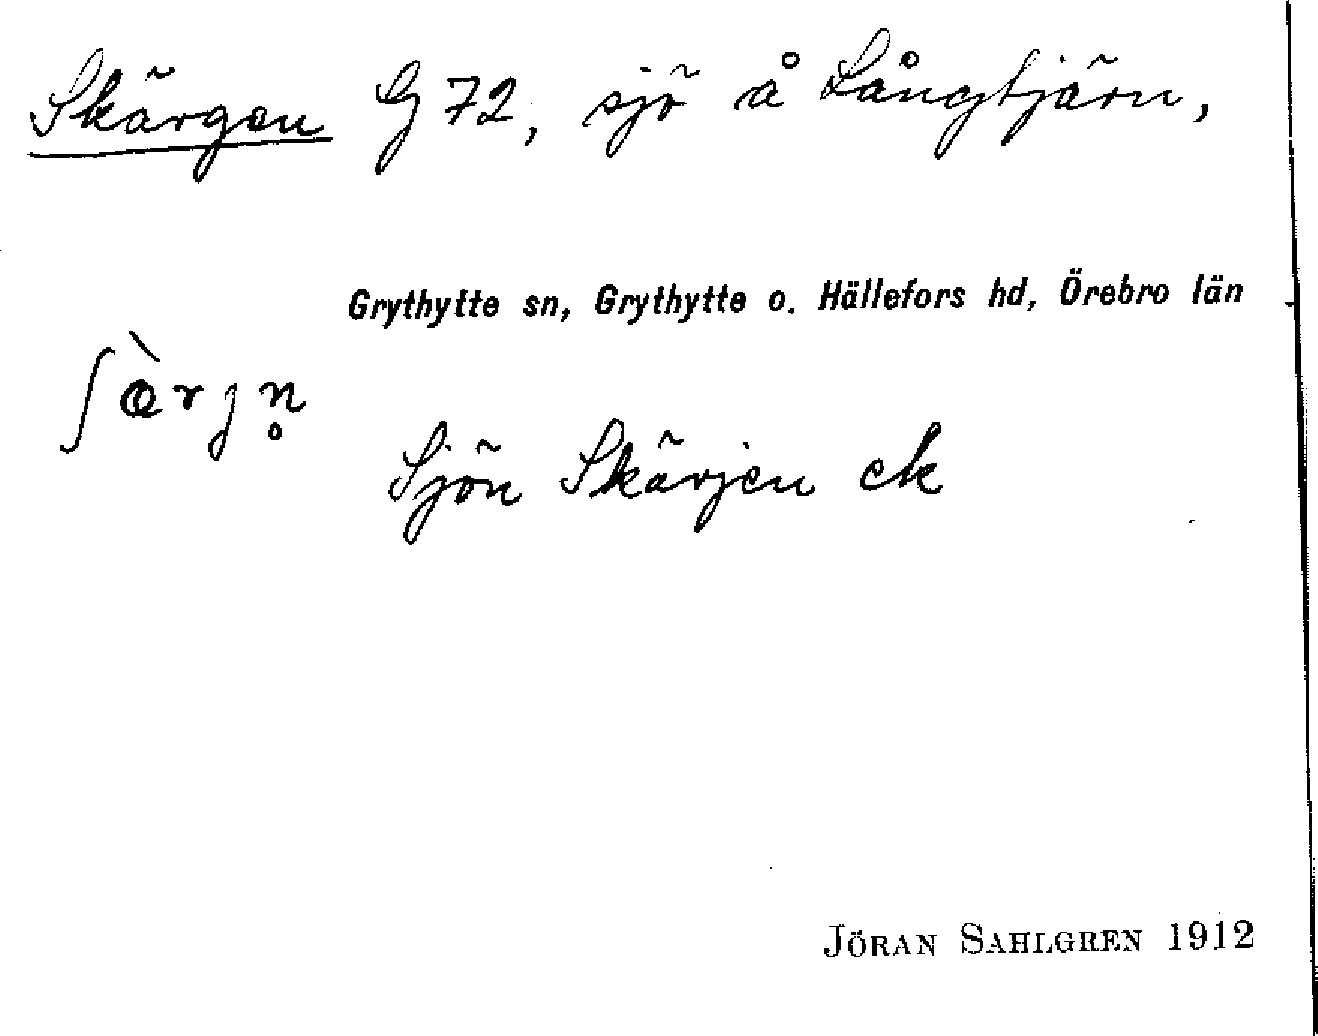 Skärgen G 72, sjö å Långtjärn,
Grythytte sn, Grythytte o. Hällefors hd, Örebro län
ʃæ̀rjn̥
Sjön Skärjen ek
Jöran Sahlgren 1912